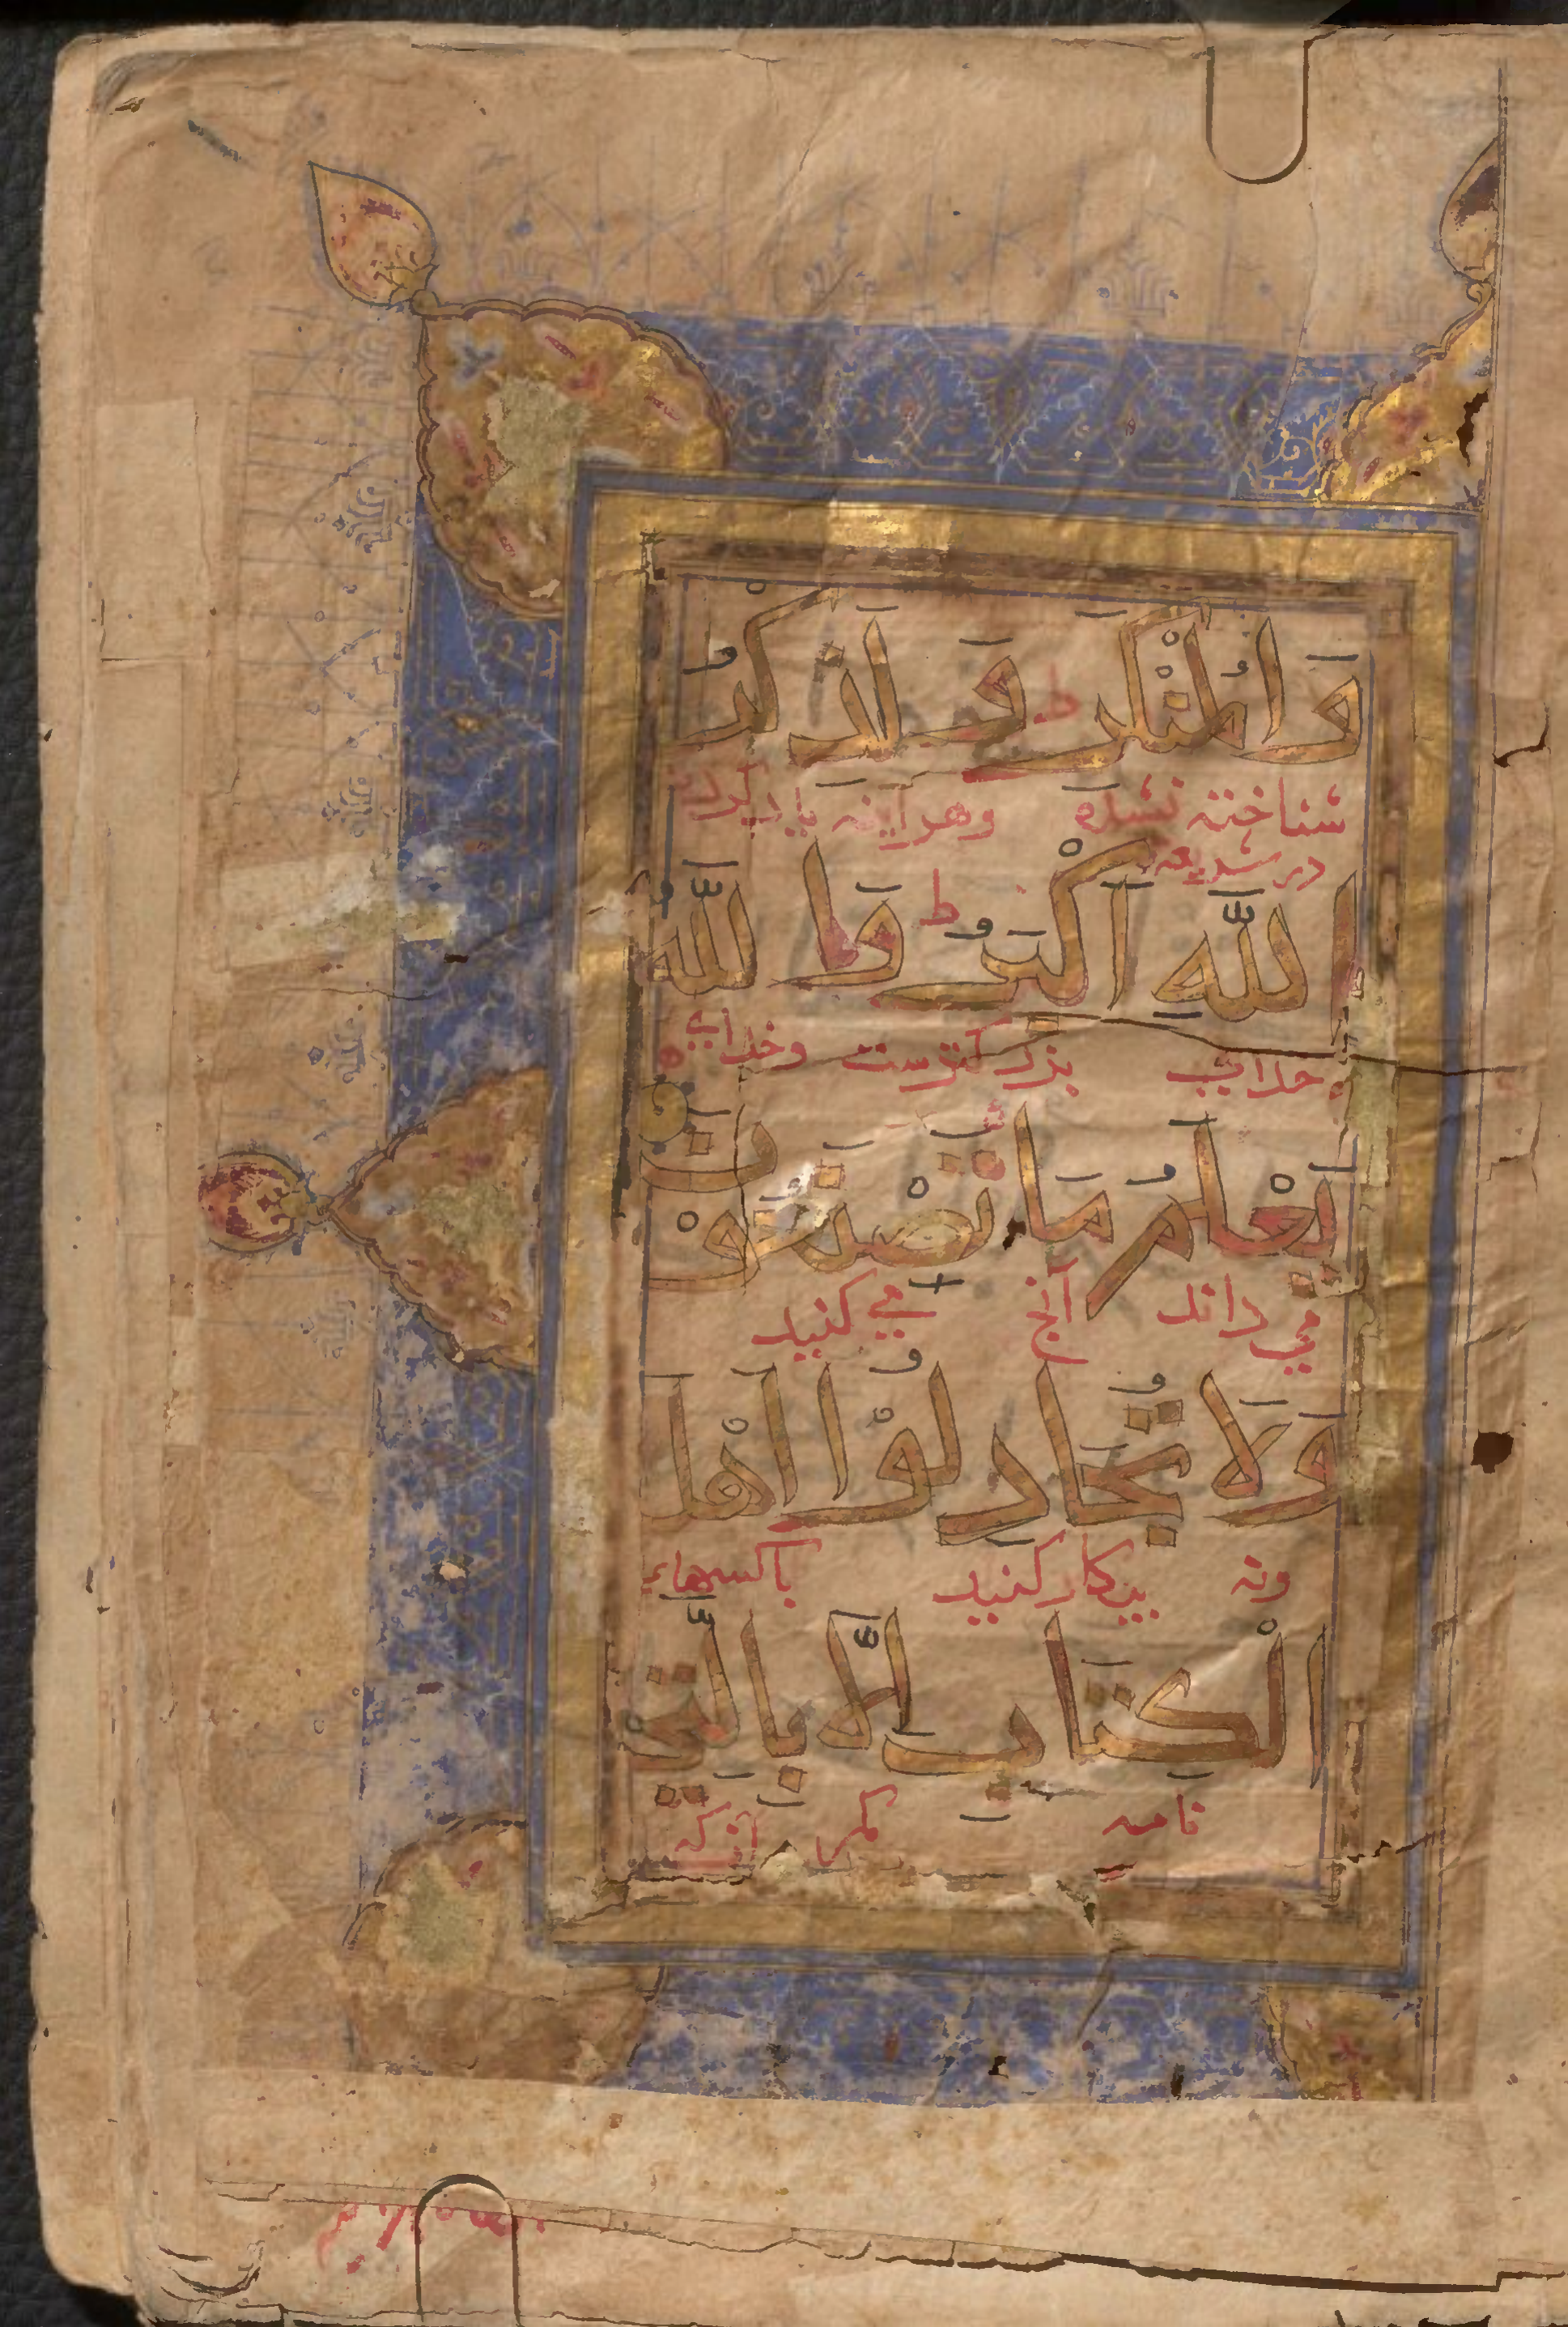 وَالْمُنْكَرِ ط وَلَذِكْرُ
شناخته نشده وهرآینه یاد کردن
در شریعه
اللَّهِ اَكْبَرُ ط وَاللَّهُ
خدایی بزرکترست وخدای
يَعْلَمُ مَا تَصْنَعُوْنَ
می داند آنچ می کنید
وَلَا تُجَادِلُوْا اَهْلَ
ونه پیکار کنید باکسهاء
الْكِتَابِ اِلَّا بِالَّتِي
نامه مکر آنکه